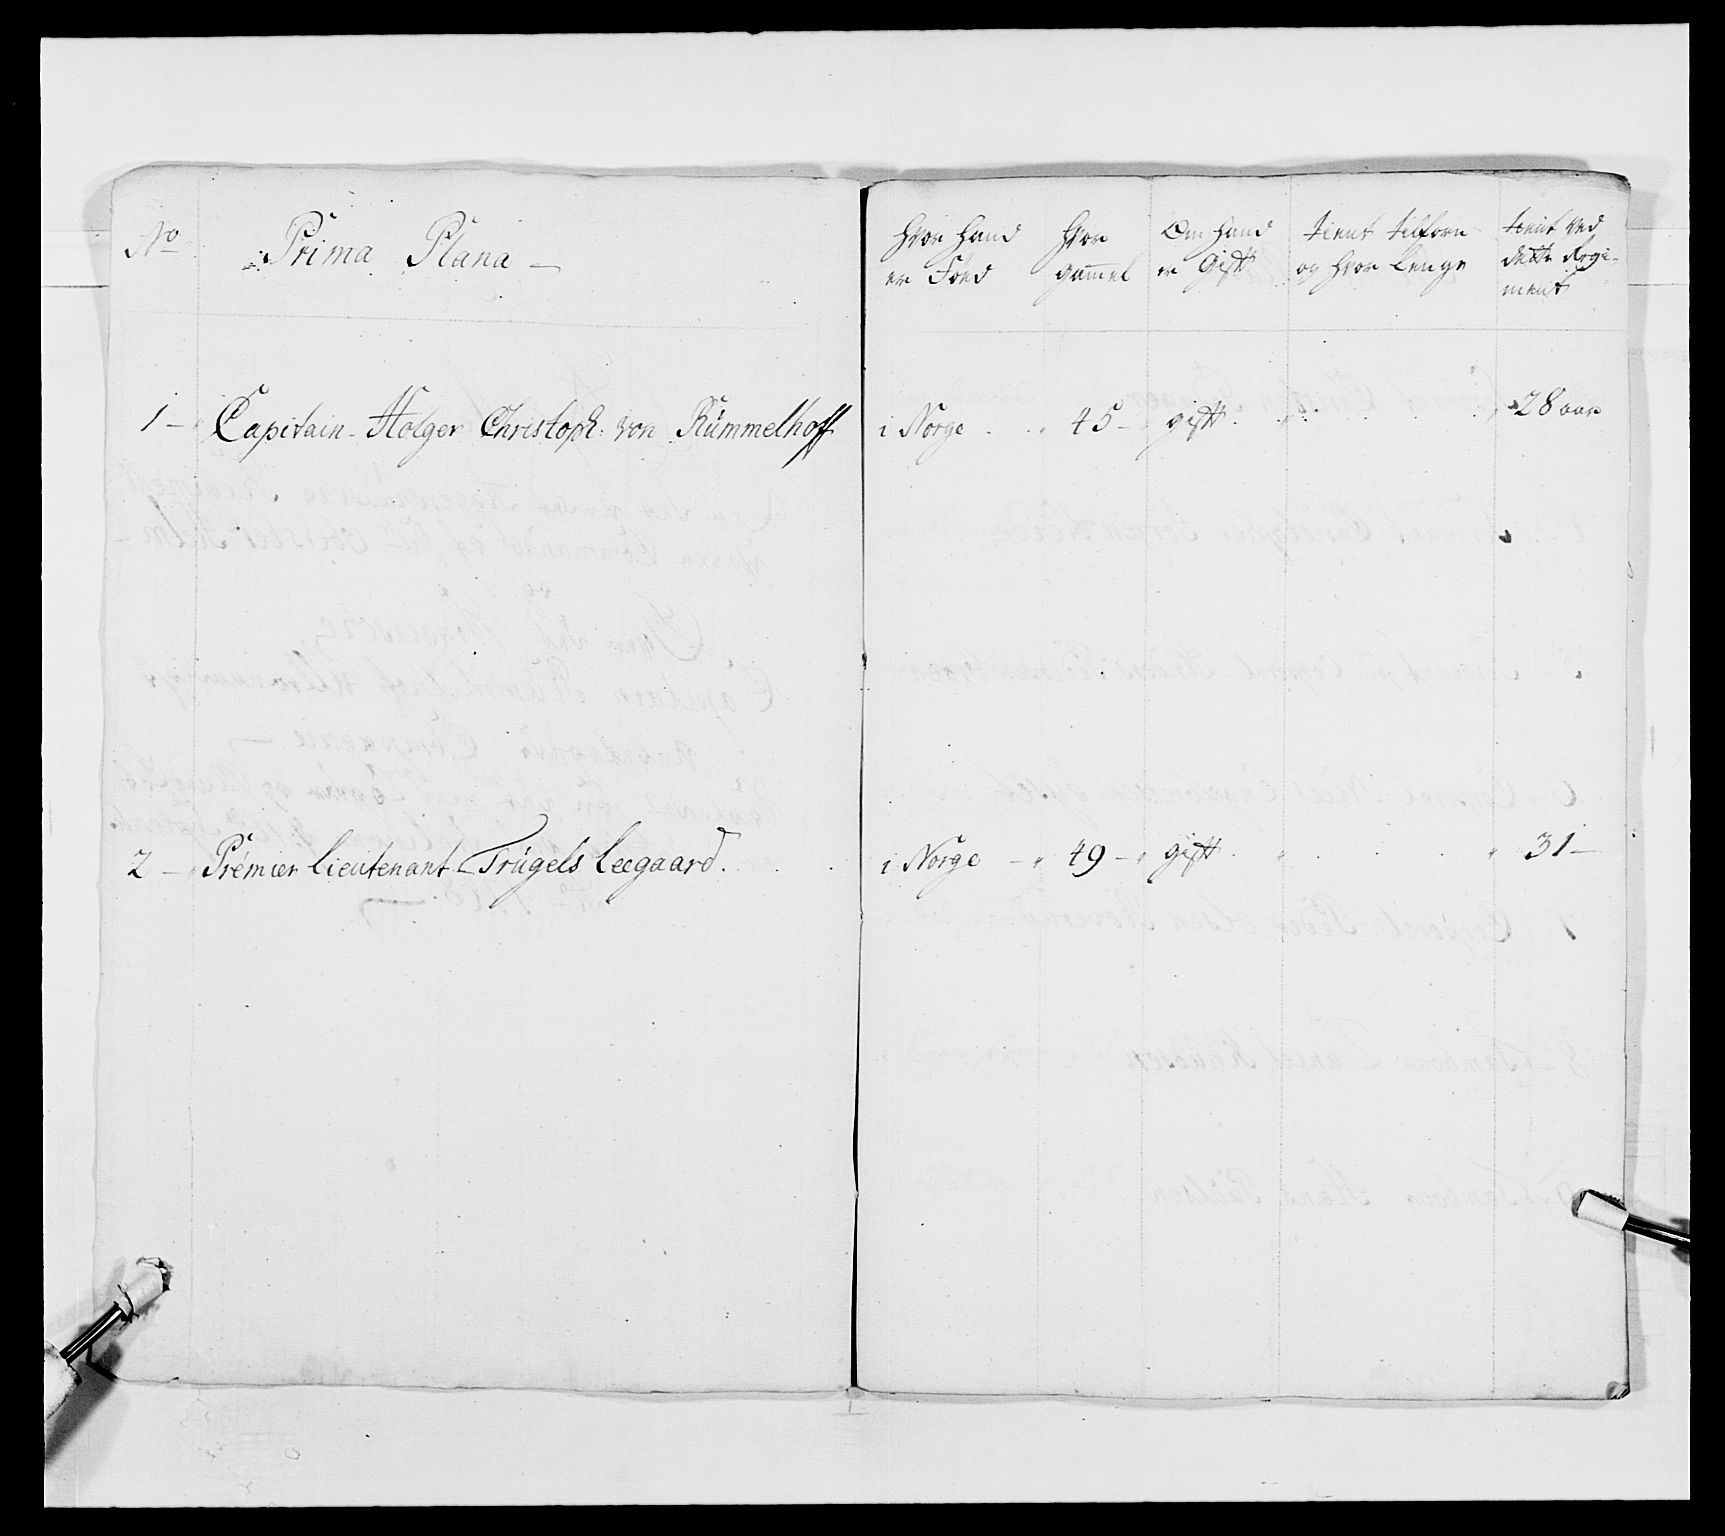 No Prima Plana
Hvor Hand er Föed
Hvor gammel
Om Hand er Gift
tient tilforn og Hvor Lenge
tient ved dette Regiment
1 Capitain Holger Christoph: von Rümmelhoff i Norge 45 gift 28 aar
2 Premier Lieutenant Trügels Leegaard i Norge 49 gift 31